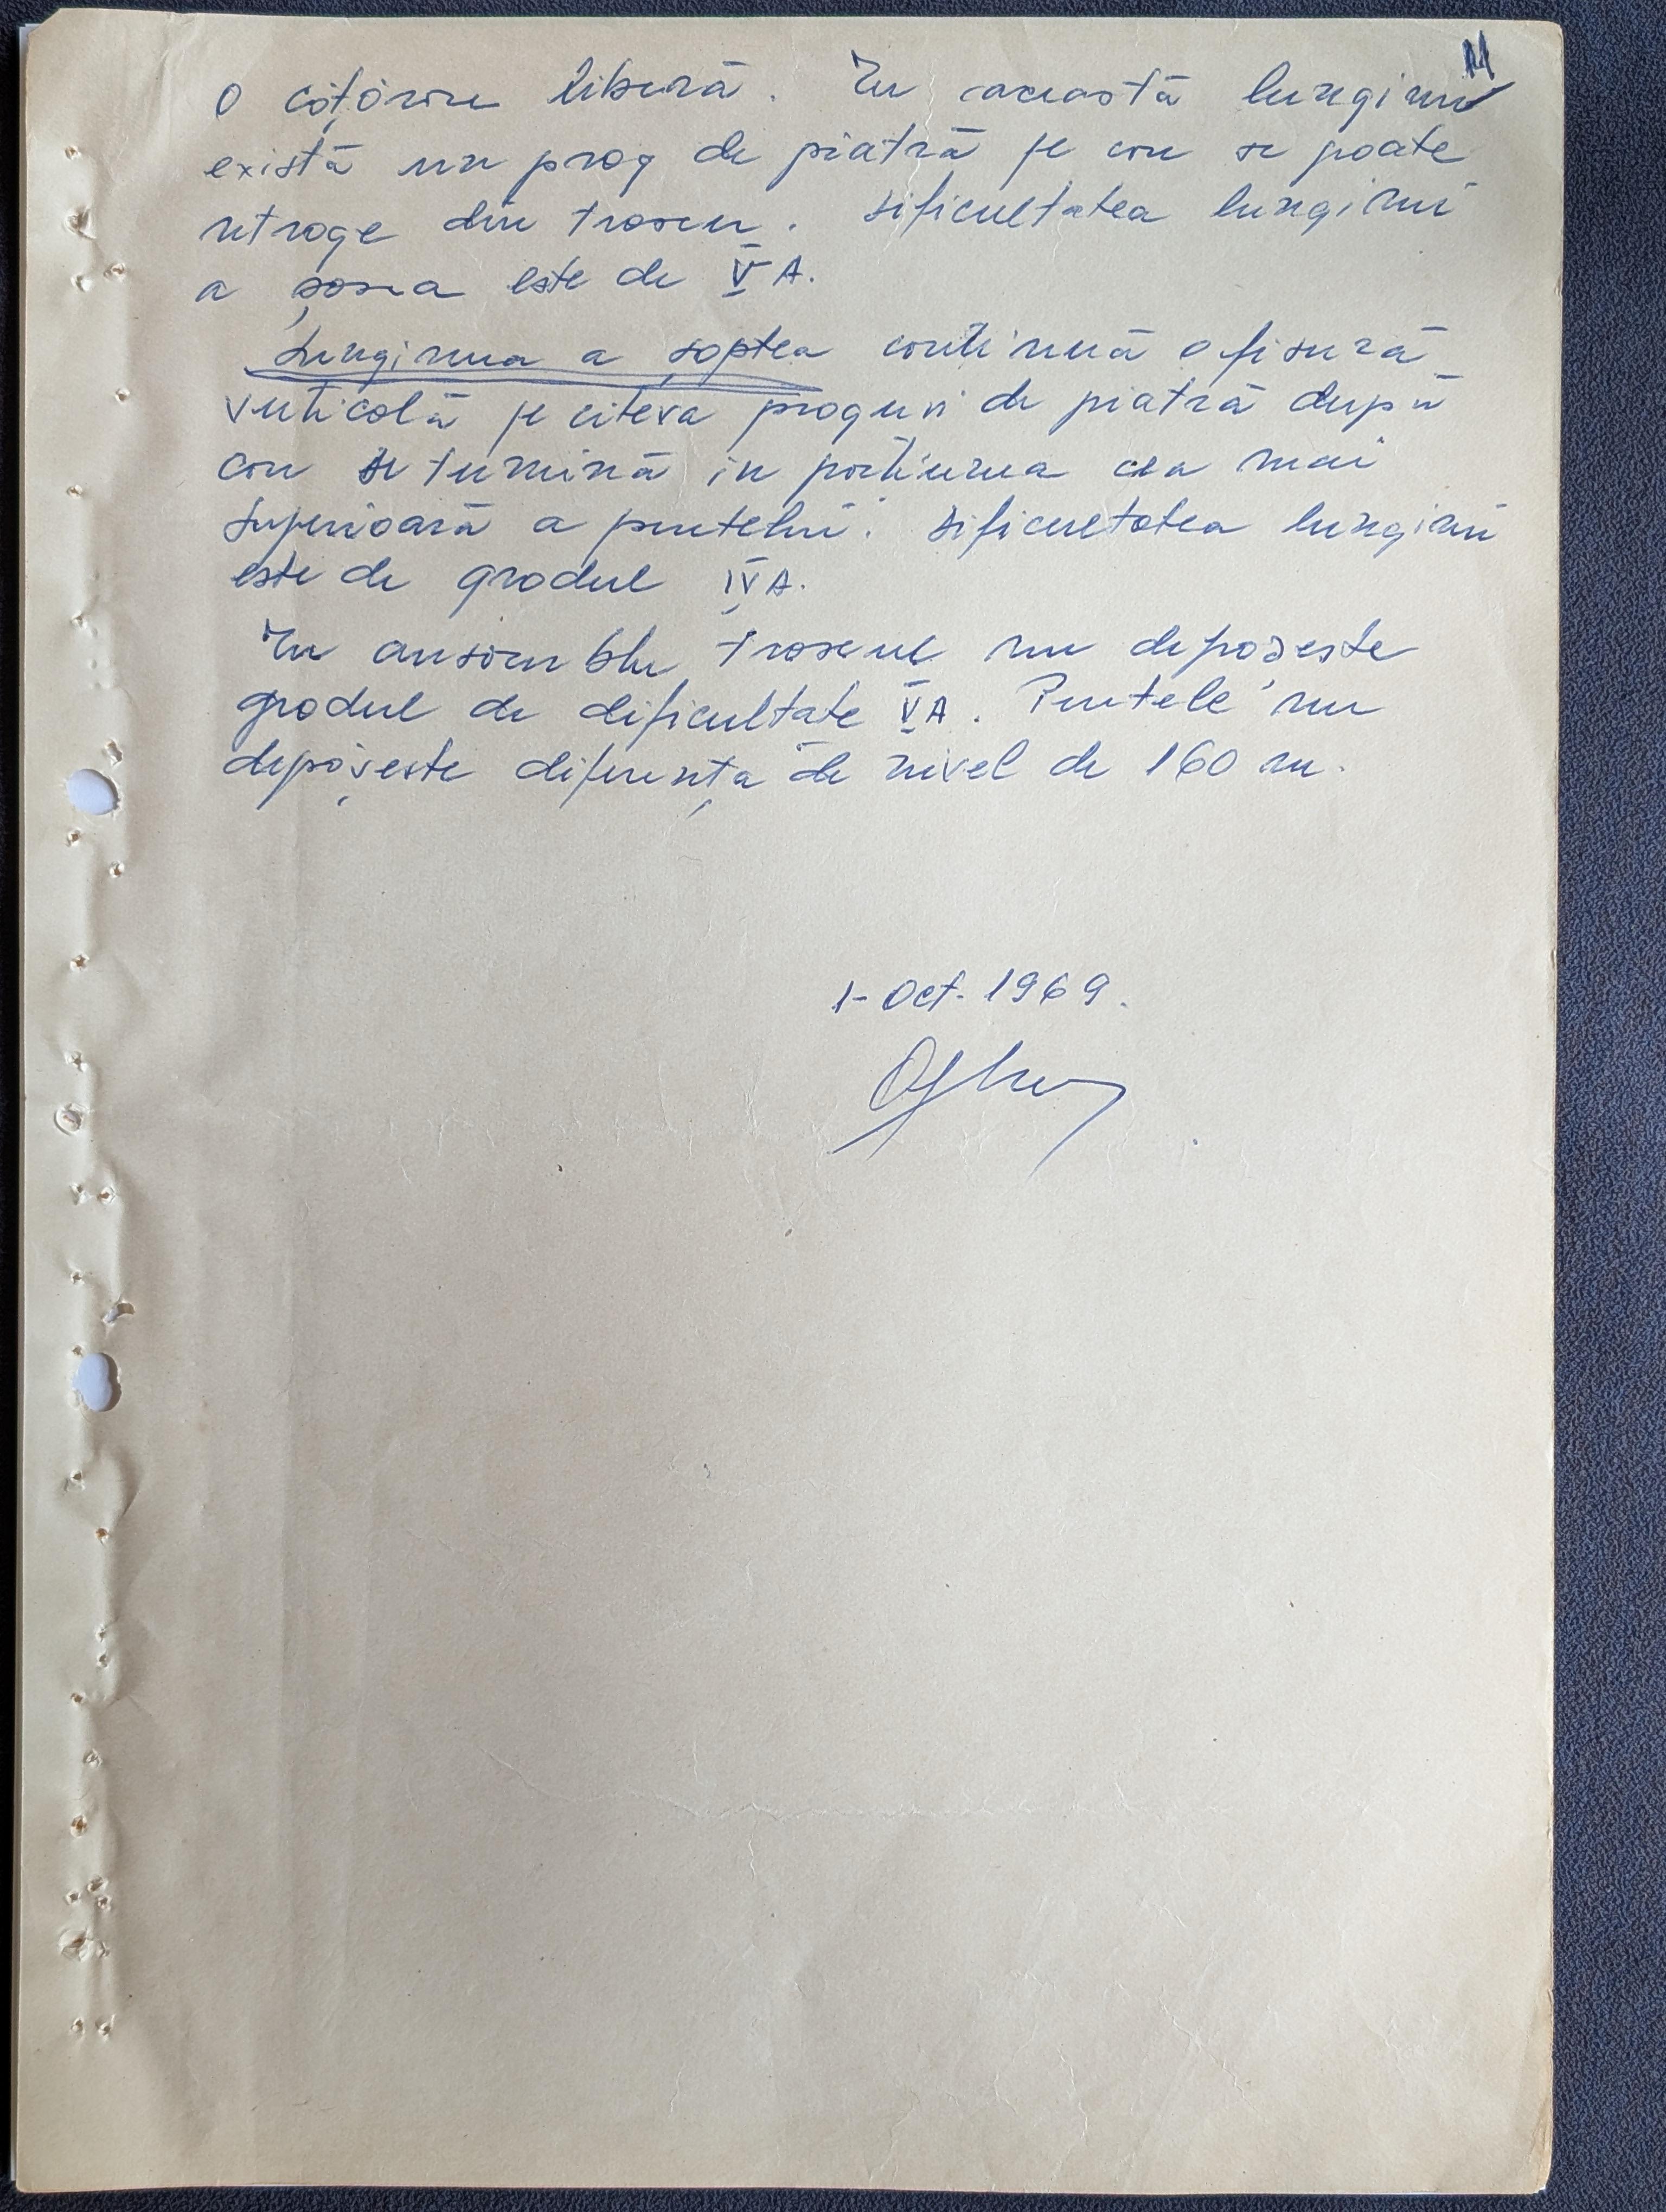 11
o cățărare liberă. În această lungime
există un prag de piatră pe care se poate
retrage din traseu. Dificultatea lungimii
a șasea este de V A.
Lungimea a șaptea continuă o fisură
verticală pe citeva praguri de piatră după
care se termină in porțiunea cea mai
superioară a peretelui. Dificultatea lungimii
este de gradul IV A.
În ansamblu traseul nu depășește
gradul de dificultate V A. Peretele nu
depășește diferența de nivel de 160 m.
1-Oct. 1969.